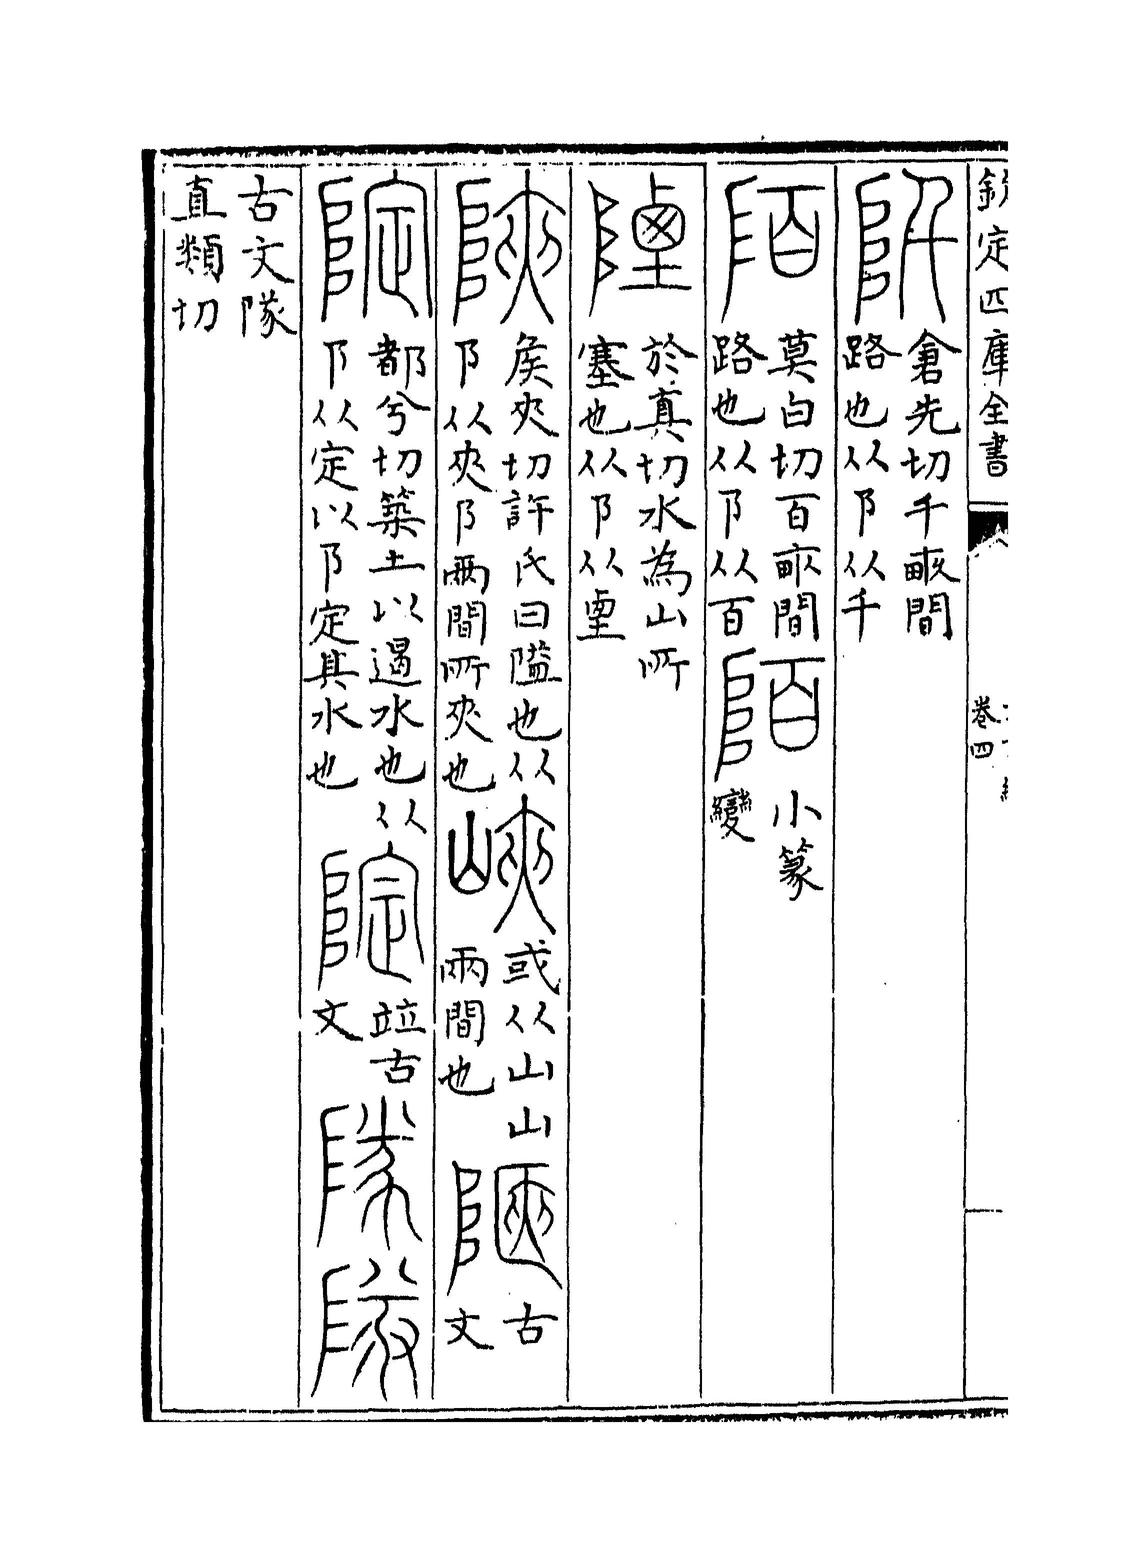 欽定四庫全書
卷四
阡 倉先切千畞間
路也从𨸏从千
陌 莫白切百畞間
路也从𨸏从百
陌 小篆
變
陻 於真切水為山所
塞也从𨸏从垔
陜 矦夾切許氏曰隘也从
𨸏从夾𨸏兩間所夾也
峽 或从山山
兩間也
古
文
都兮切築土以遏水也从
𨸏从定以𨸏定其水也
竝古
文
古文隊
直類切